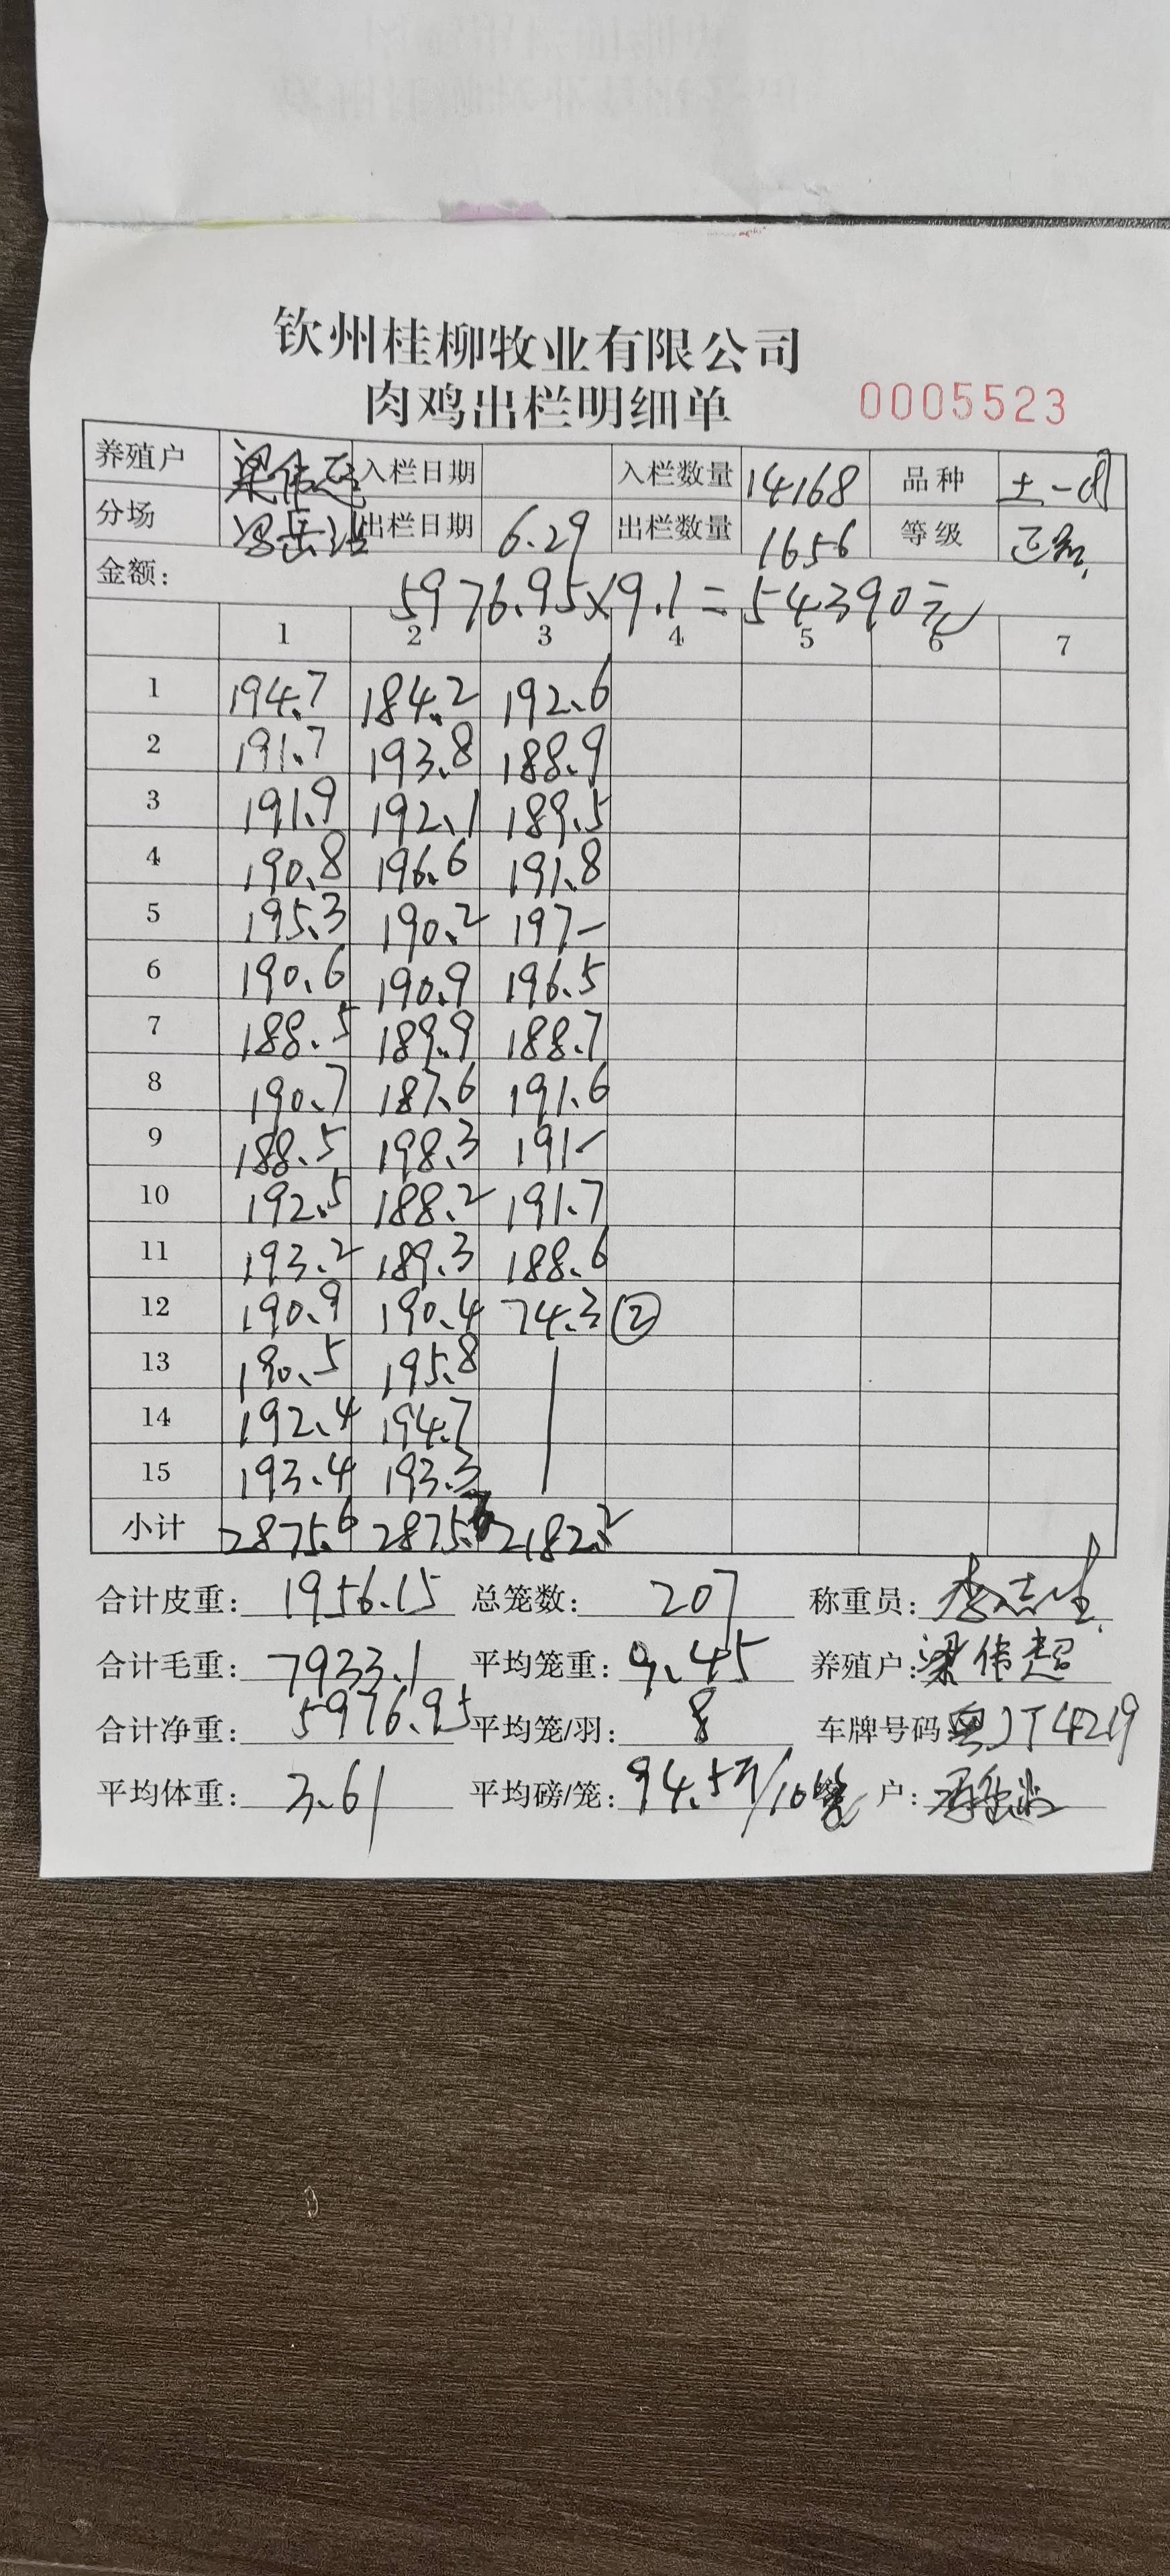 钦州桂柳牧业有限公司
肉鸡出栏明细单 0005523
养殖户 梁伟超 入栏日期 入栏数量 14168 品种
分场 出栏日期 6.29 出栏数量 1656 等级
金额: 5976.95×9.1=54390元
1 2 3 4 5 6 7
1 194.7 184.2 192.6
2 191.7 193.8 188.9
3 191.9 192.1 189.5
4 190.8 196.6 191.8
5 195.3 190.2 197-
6 190.6 190.9 196.5
7 188.5 189.9 188.7
8 190.7 187.6 191.6
9 188.5 198.3 191-
10 192.5 188.2 191.7
11 193.2 189.3 188.6
12 190.9 190.4 74.3 ②
13 190.5 195.8
14 192.4 194.7
15 193.4 193.3
小计 2875.6 2875.3 2182.2
合计皮重: 1956.15 总笼数: 207 称重员:
合计毛重: 7933.1 平均笼重: 9.45 养殖户: 梁伟超
合计净重: 5976.95 平均笼/羽: 8 车牌号码 粤JT4219
平均体重: 3.61 平均磅/笼: 94.5斤/10笼 户: